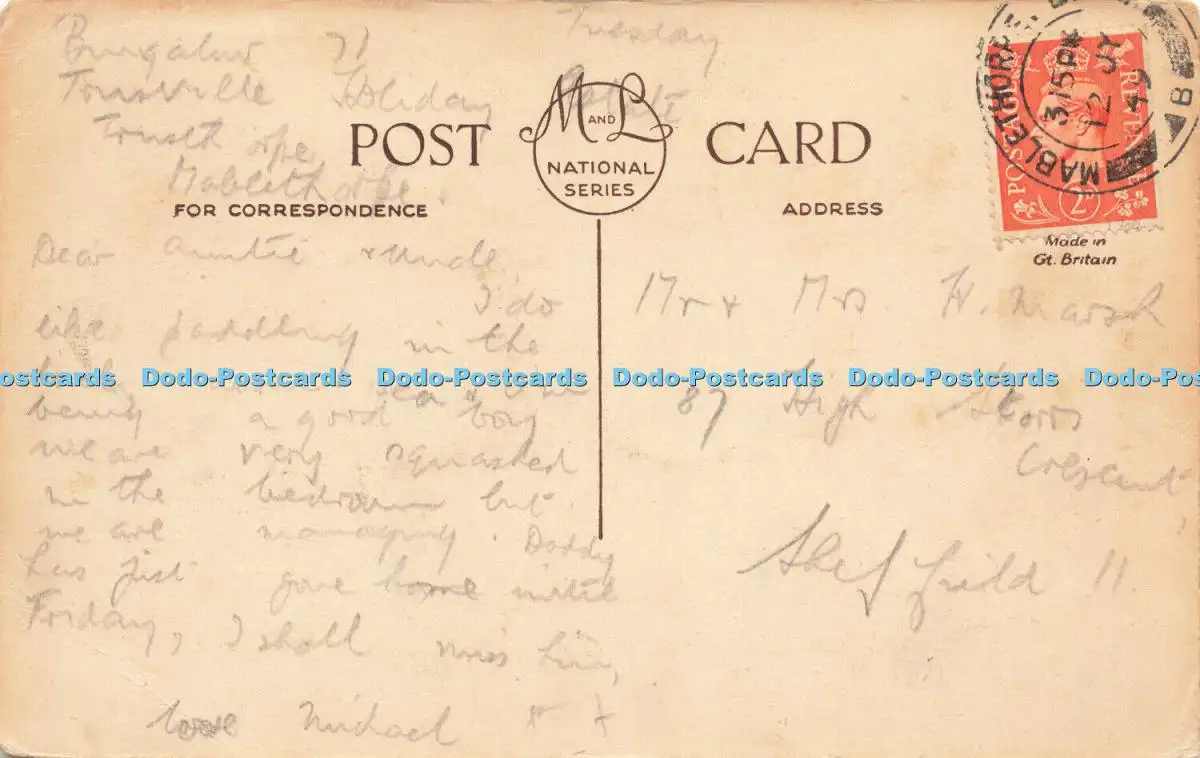 Bungalow 71 Tuesday
Trusville Holiday Estate
Trusthorpe,
Mablethorpe.
POST CARD
M AND L
NATIONAL
SERIES
FOR CORRESPONDENCE
ADDRESS
MABLETHORPE
315PM
12 JY
49
POSTAGE REVENUE
2D
Made in
Gt. Britain
Dear Auntie & Uncle,
I do
like paddling in the
sea
being a good boy
we are very squashed
in the bedroom but
we are managing. Daddy
has just gone home until
Friday, I shall miss him,
love Michael x x
Mr & Mrs. H. Marsh
87 High Storrs
Crescent,
Sheffield 11.
Dodo-Postcards Dodo-Postcards Dodo-Postcards Dodo-Postcards